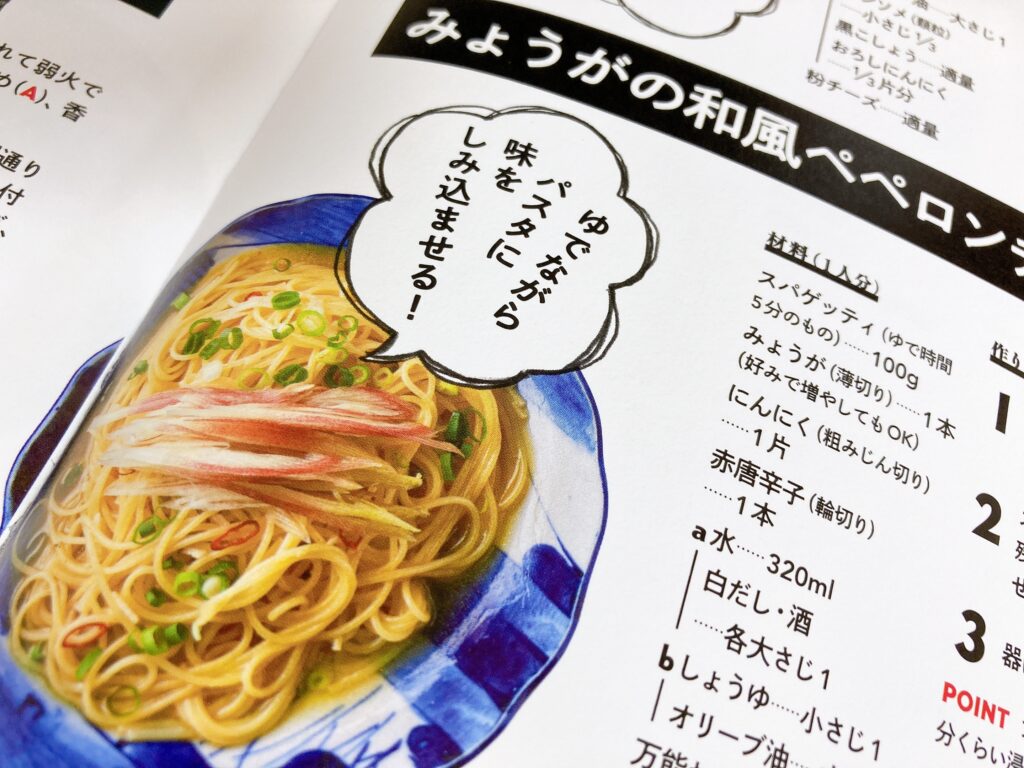 れて弱火で
め(A)、香
通り
付
油……大さじ1
ツメ(顆粒)
小さじ1/3
黒こしょう……適量
おろしにんにく
……1/3片分
粉チーズ……適量
みょうがの和風ペペロンチ
ゆでながら
パスタに
味を
しみ込ませる!
材料(1人分)
スパゲッティ(ゆで時間
5分のもの)……100g
みょうが(薄切り)……1本
(好みで増やしてもOK)
にんにく(粗みじん切り)
……1片
赤唐辛子(輪切り)
……1本
a水……320ml
白だし・酒
……各大さじ1
bしょうゆ……小さじ1
オリーブ油……
万能
作り
1
2
3
器
POINT
分くらい